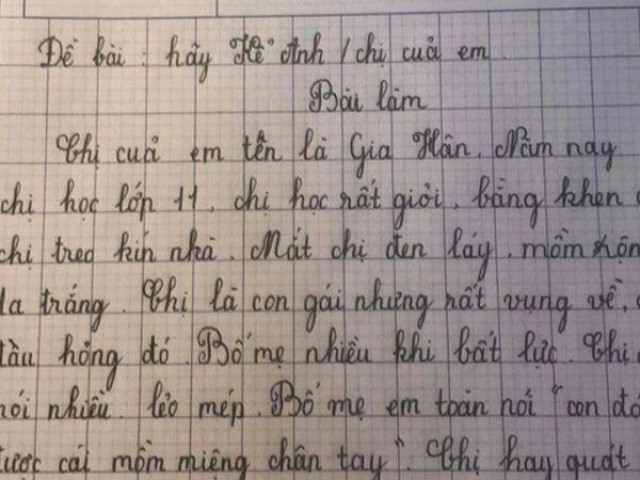 Đề bài : hãy kể anh / chị cuả em
Bài làm
Chị cuả em tên là Gia Hân. Năm nay
chị học lớp 11, chị học rất giỏi, bằng khen
chị treo kín nhà. Mắt chị đen láy, mồm
da trắng. Chị là con gái nhưng rất vụng về,
đâu hỏng đó. Bố mẹ nhiều khi bất lực. Chị
nói nhiều, lẻo mép. Bố mẹ em toàn nói "con đó
được cái mồm miệng chân tay". Chị hay quát